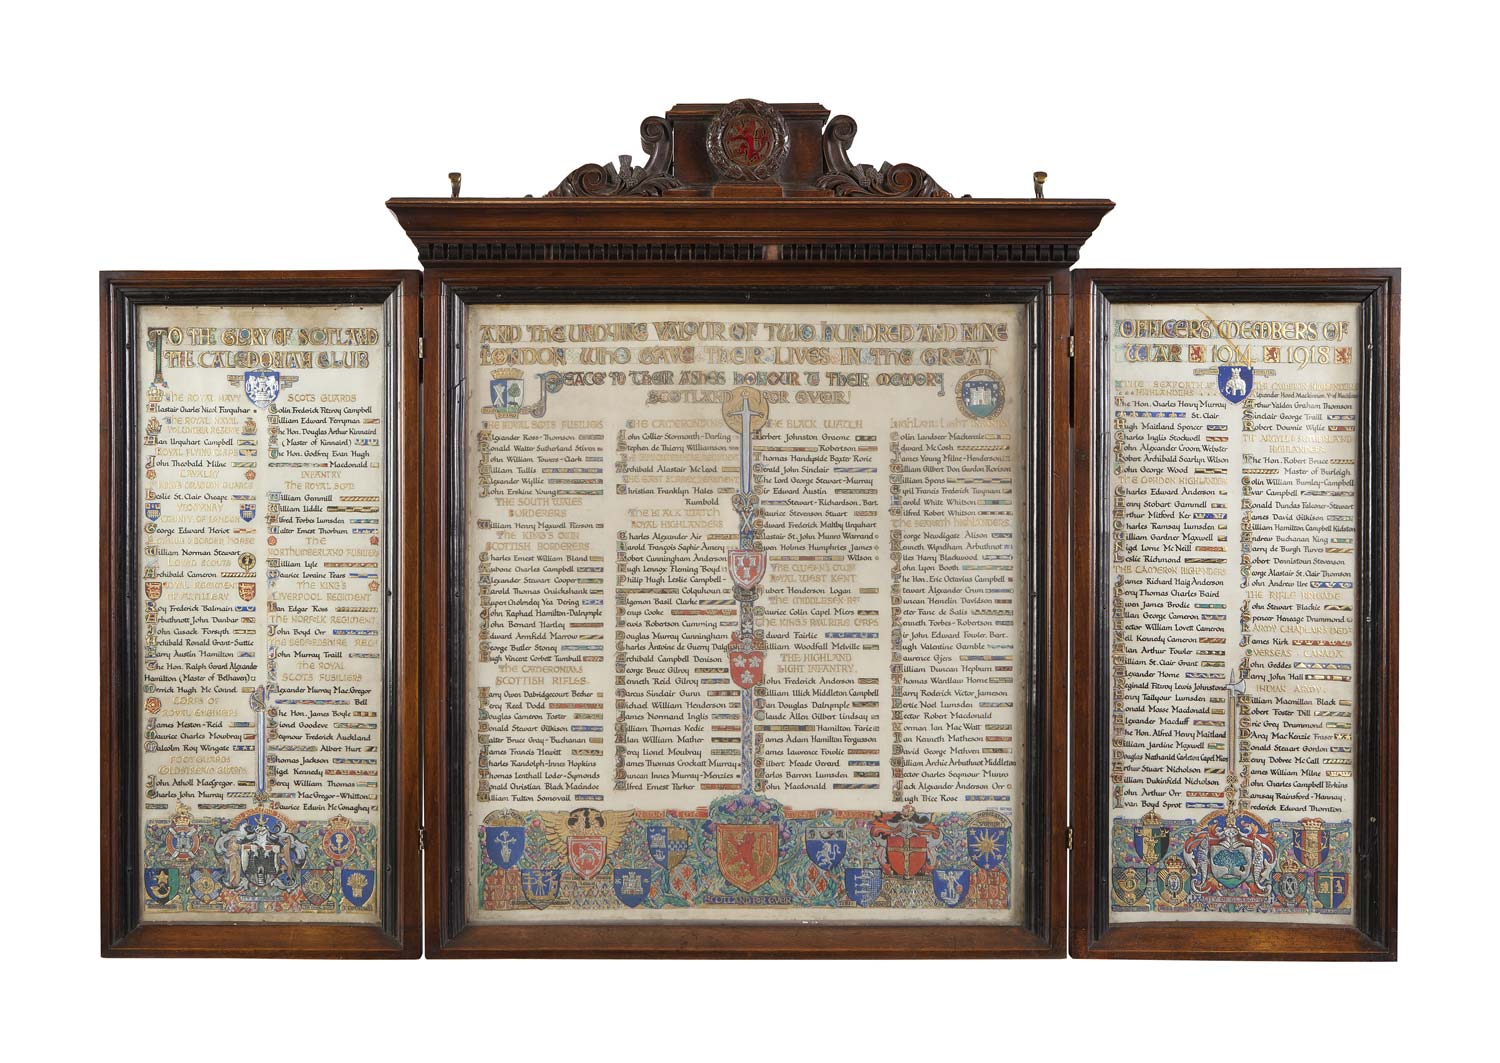 TO THE GLORY OF SCOTLAND
THE CALEDONIAN CLUB
THE ROYAL NAVY
Alastair Charles Nicol Farquhar
THE ROYAL NAVAL
VOLUNTEER RESERVE
Ian Urquhart Campbell
ROYAL FLYING CORPS
John Theobald Milne
CAVALRY
KING'S DRAGOON GUARDS
Leslie St. Clair Cheape
YEOMANRY
COUNTY OF LONDON
George Edward Heriot
LOTHIANS & BORDER HORSE
William Norman Stewart
LOVAT SCOUTS
Archibald Cameron
ROYAL REGIMENT
OF ARTILLERY
Roy Frederick Balmain
Arbuthnott John Dunbar
John Cusack Forsyth
Archibald Ronald Grant-Suttie
Harry Austin Hamilton
The Hon. Ralph Gerard Alexander
Hamilton (Master of Belhaven)
Merrick Hugh McConnel
CORPS OF
ROYAL ENGINEERS
James Meston-Reid
Maurice Charles Moubray
Malcolm Roy Wingate
FOOT GUARDS
COLDSTREAM GUARDS
John Atholl MacGregor
Charles John Murray
SCOTS GUARDS
Colin Frederick Fitzroy Campbell
William Edward Ferryman
The Hon. Douglas Arthur Kinnaird
(Master of Kinnaird)
The Hon. Godfrey Evan Hugh
Macdonald
INFANTRY
THE ROYAL SCOTS
William Gemmill
William Liddle
Alfred Forbes Lumsden
Walter Ernest Thorburn
THE
NORTHUMBERLAND FUSILIERS
William Lyle
Maurice Loraine Pears
THE KING'S
LIVERPOOL REGIMENT
Ian Edgar Ross
THE NORFOLK REGIMENT
John Boyd Orr
THE BEDFORDSHIRE REGT.
John Murray Traill
THE ROYAL
SCOTS FUSILIERS
Alexander Murray MacGregor
Bell
The Hon. James Boyle
Lionel Goodeve
Seymour Frederick Auckland
Albert Hurt
Thomas Jackson
Nigel Kennedy
Percy William Thomas
MacGregor-Whitton
Maurice Edwin McConaghey
AND THE UNDYING VALOUR OF TWO HUNDRED AND NINE
LONDON WHO GAVE THEIR LIVES IN THE GREAT
PEACE TO THEIR ASHES HONOUR TO THEIR MEMORY
SCOTLAND FOR EVER!
THE ROYAL SCOTS FUSILIERS
Alexander Ross-Thomson
Ronald Walter Sutherland Stiven
John William Towers-Clark
William Tullis
Alexander Wyllie
John Erskine Young
THE SOUTH WALES
BORDERERS
William Henry Maxwell Pierson
THE KING'S OWN
SCOTTISH BORDERERS
Charles Ernest William Bland
Aubone Charles Campbell
Alexander Stewart Cooper
Harold Thomas Cruickshank
Rupert Cholmeley Yea Dering
John Raphael Hamilton-Dalrymple
John Bernard Hartley
Edward Armfield Marrow
George Butler Stoney
Hugh Vincent Corbett Turnbull
THE CAMERONIANS
SCOTTISH RIFLES
Harry Gwen Dabridgecourt Becher
Percy Reed Dodd
Douglas Cameron Foster
Donald Stewart Gilkison
Walter Bruce Gray-Buchanan
James Francis Hewitt
Charles Randolph-Innes Hopkins
Thomas Lenthall Loder-Symonds
Ronald Christian Black Macindoe
William Fulton Somervail
THE CAMERONIANS
John Collier Stormonth-Darling
Stephen de Thierry Williamson
Archibald Alastair McLeod
THE EAST SURREY REGIMENT
Christian Franklyn Hales
Rumbold
THE BLACK WATCH
ROYAL HIGHLANDERS
Charles Alexander Air
Harold François Saphir Amery
Robert Cunningham Anderson
Hugh Lennox Fleming Boyd
Philip Hugh Leslie Campbell-
Colquhoun
Algernon Basil Clarke
Denys Cooke
Lewis Robertson Cumming
Douglas Murray Cunningham
Charles Antoine de Guerry Dalglish
Archibald Campbell Denison
George Bruce Gilroy
Kenneth Reid Gilroy
Marcus Sinclair Gunn
Michael William Henderson
James Normand Inglis
William Thomas Kedie
Ian William Mather
Percy Lionel Moubray
James Thomas Crockatt Murray
Duncan Innes Murray-Menzies
Alfred Ernest Parker
THE BLACK WATCH
Herbert Johnston Graeme
Robertson
Thomas Handyside Baxter Rorie
Gerald John Sinclair
The Lord George Stewart-Murray
Sir Edward Austin
Stewart-Richardson, Bart.
Maurice Stevenson Stuart
Edward Frederick Maltby Urquhart
Alastair St. John Munro Warrand
Owen Holmes Humphries James
Wilson
THE QUEEN'S OWN
ROYAL WEST KENT
Hubert Henderson Logan
THE MIDDLESEX RGT.
Maurice Colin Capel Miers
THE KING'S ROYAL RIFLE CORPS
Edward Fairlie
William Woodfall Melville
THE HIGHLAND
LIGHT INFANTRY
John Frederick Anderson
William Ulick Middleton Campbell
Ian Douglas Dalrymple
Claude Allen Gilbert Lindsay
Hamilton Farie
James Adam Hamilton Fergusson
James Lawrence Fowlie
Gilbert Meade Gerard
Carlos Barron Lumsden
John Macdonald
HIGHLAND LIGHT INFANTRY
Colin Landseer Mackenzie
Edward McCosh
James Young Milne-Henderson
William Gilbert Don Gurdon Rorison
William Spens
Cyril Francis Frederick Tugnam
Harold White Whitson
Alfred Robert Whitson
THE SEAFORTH HIGHLANDERS
George Newdigate Alison
Kenneth Wyndham Arbuthnot
Giles Harry Blackwood
John Lyon Booth
The Hon. Eric Octavius Campbell
Stewart Alexander Crum
Duncan Henelin Davidson
Peter Fane de Salis
Kenneth Forbes-Robertson
Sir John Edward Fowler, Bart.
Hugh Valentine Gamble
Laurence Gjers
William Duncan Hepburn
Thomas Wardlaw Home
Harry Roderick Victor Jameson
Bertie Noel Lumsden
Hector Robert Macdonald
Norman Ian MacWatt
Ian Kenneth Matheson
David George Methven
William Archie Arbuthnot Middleton
Hector Charles Seymour Munro
Jack Alexander Anderson Orr
Hugh Price Rose
SCOTLAND FOR EVER
OFFICERS MEMBERS OF
WAR 1914 1918
THE SEAFORTH
HIGHLANDERS
The Hon. Charles Henry Murray
St. Clair
Hugh Maitland Spencer
Charles Inglis Stockwell
John Alexander Croom Webster
Robert Archibald Scarlyn Wilson
John George Wood
THE GORDON HIGHLANDERS
Charles Edward Anderson
Henry Stobart Gammell
Arthur Mitford Ker
Charles Ramsay Lumsden
William Gardner Maxwell
Nigel Lorne McNeill
Leslie Richmond
THE CAMERON HIGHLANDERS
James Richard Haig Anderson
Percy Thomas Charles Baird
Ewen James Brodie
Allan George Cameron
Hector William Lovett Cameron
Neil Kennedy Cameron
Ian Arthur Fowler
William St. Clair Grant
Alexander Horne
Reginald Fitzroy Lewis Johnstone
Harry Tailyour Lumsden
Ronald Mosse Macdonald
Alexander Macduff
The Hon. Alfred Henry Maitland
William Jardine Maxwell
Douglas Nathaniel Carleton Capel Miers
Arthur Stuart Nicholson
William Dukinfield Nicholson
John Arthur Orr
Ivan Boyd Sprot
THE CAMERON HIGHLANDERS
Alexander Hood Mackinnon
Arthur Yalden Graham Thomson
Sinclair George Traill
Robert Downie Wylie
THE ARGYLL & SUTHERLAND
HIGHLANDERS
The Hon. Robert Bruce
Master of Burleigh
Colin William Burnley-Campbell
Ivar Campbell
Ronald Dundas Falconer-Stewart
James David Gilkison
William Hamilton Campbell Kidston
Andrew Buchanan King
Harry de Burgh Purves
Robert Dennistoun Stevenson
George Alastair St. Clair Thomson
John Andrew Ure
THE RIFLE BRIGADE
John Stewart Blackie
Spencer Heneage Drummond
ARMY CHAPLAINS DEPT.
James Kirk
OVERSEAS - CANADA
John Geddes
Harry John Hall
INDIAN ARMY
William Macmillan Black
Robert Foster Dill
Eric Grey Drummond
D'Arcy MacKenzie Fraser
Ronald Steuart Gordon
Henry Dobree McCall
James William Milne
John Charles Campbell Perkins
Ramsay Rainsford-Hannay
Frederick Edward Thornton
CITY OF GLASGOW